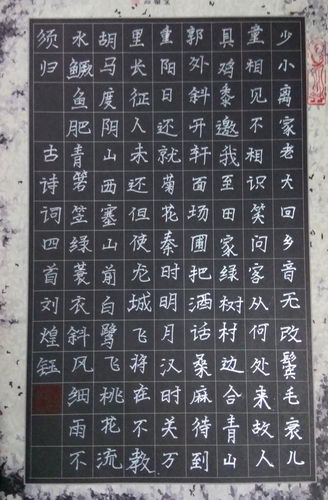 少小离家老大回乡音无改鬓毛衰儿
童相见不相识笑问客从何处来故人
具鸡黍邀我至田家绿树村边合青山
郭外斜开轩面场圃把酒话桑麻待到
重阳日还就菊花秦时明月汉时关万
里长征人未还但使龙城飞将在不教
胡马度阴山西塞山前白鹭飞桃花流
水鳜鱼肥青箬笠绿蓑衣斜风细雨不
须归 古诗词四首刘煌钰